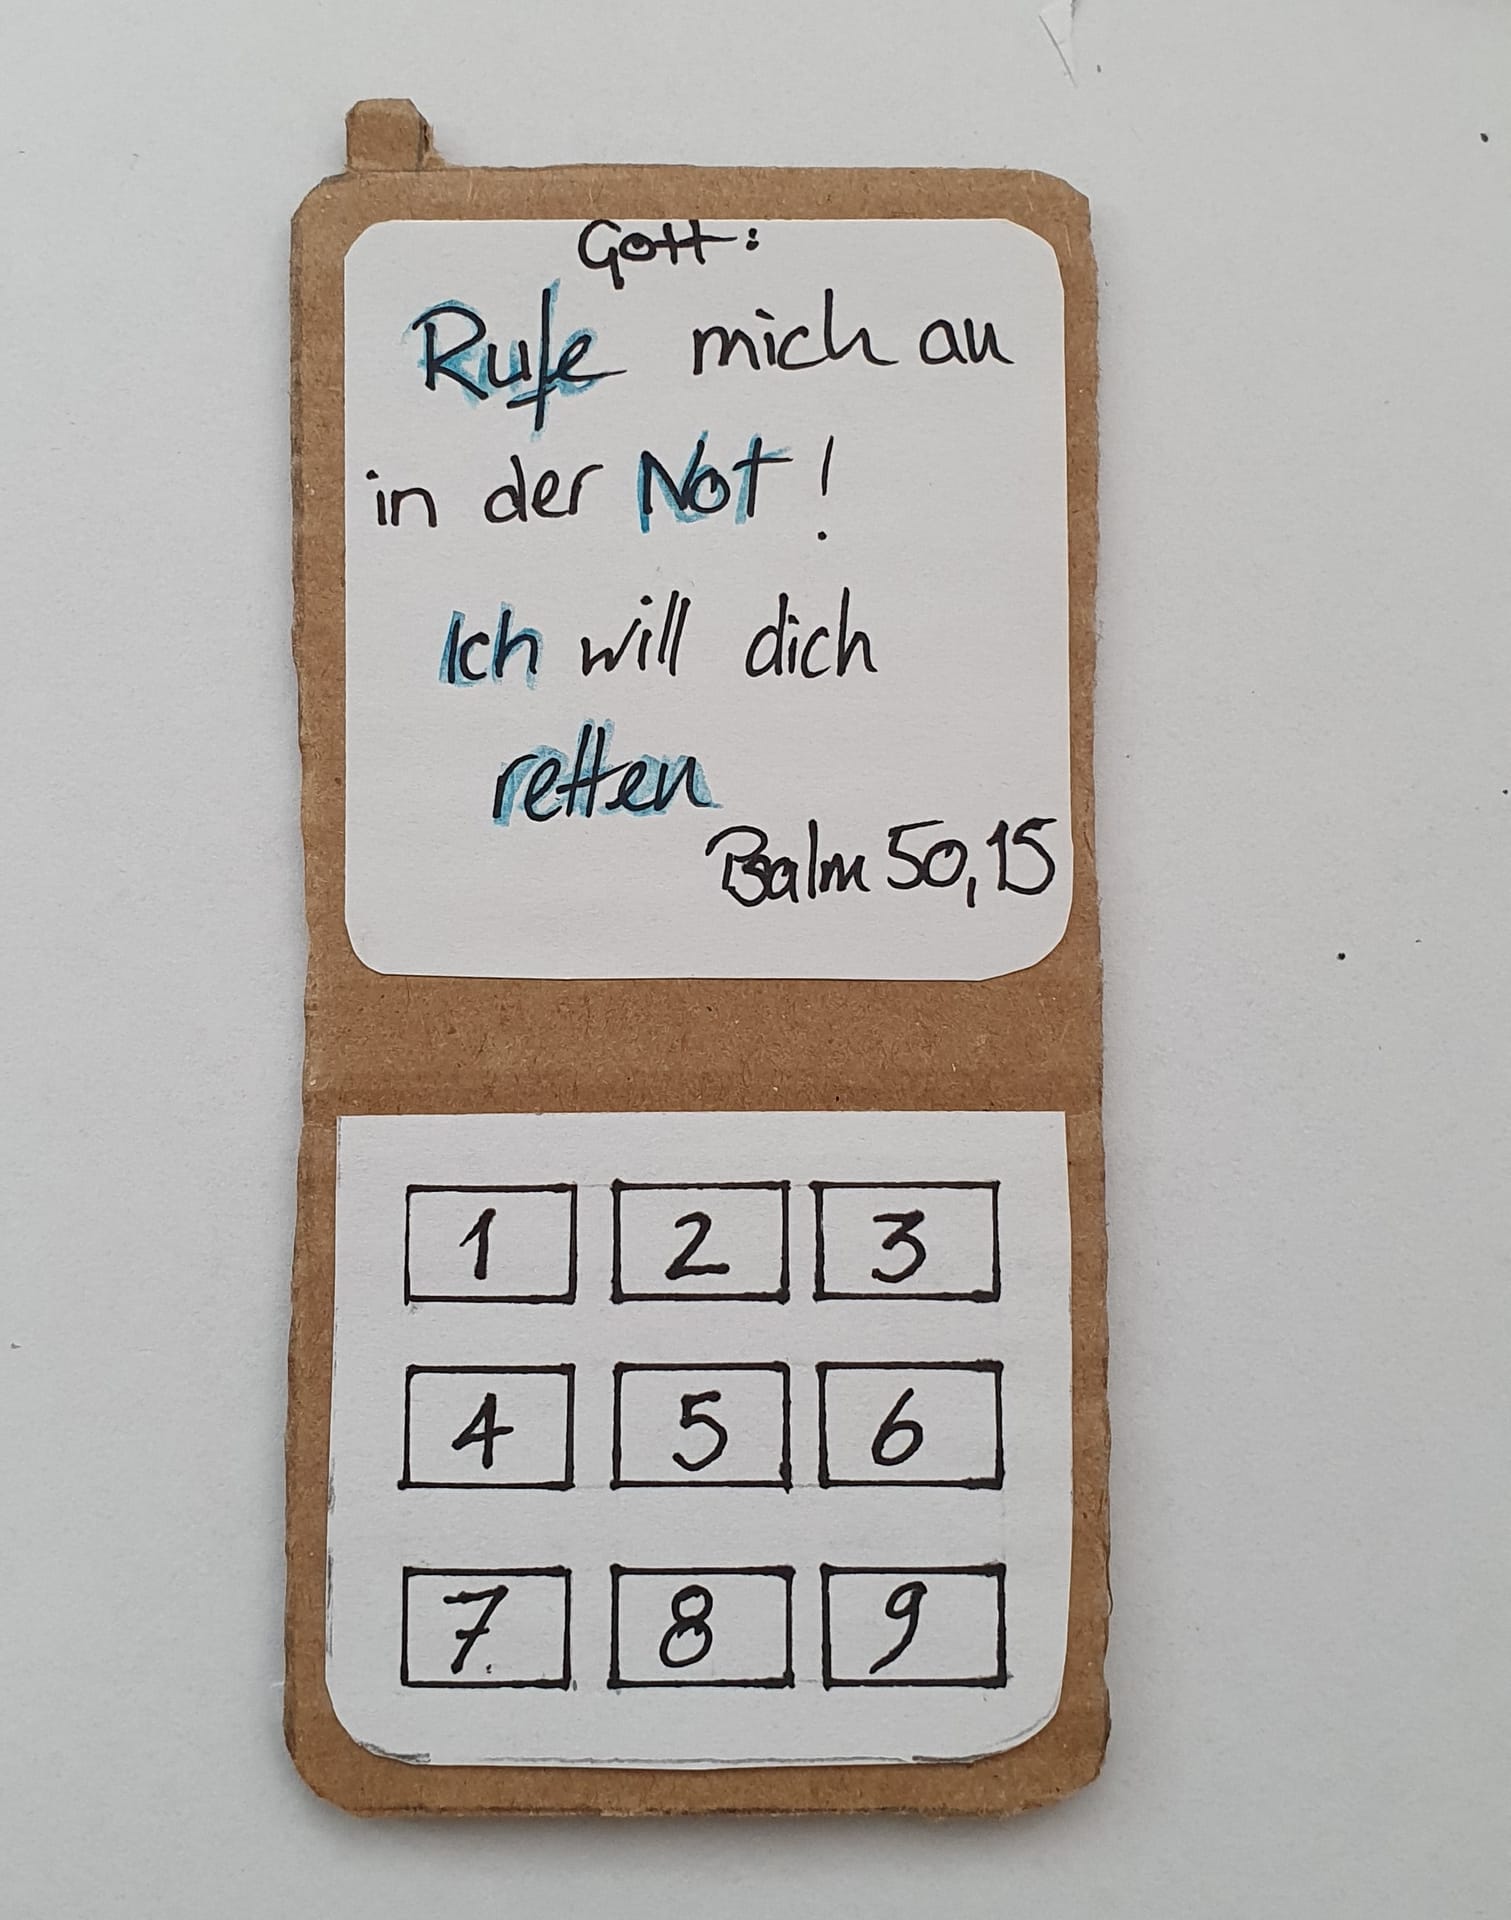 Gott:
Rufe mich an
in der Not!
Ich will dich
retten
Psalm 50,15
1 2 3
4 5 6
7 8 9